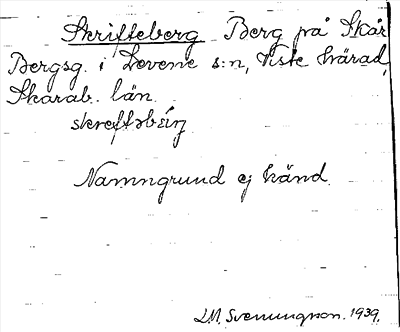 Skrifteberg Berg på Skår
Bergsg. i Levene s:n, Viste härad,
Skarab. län.
skreftəbærj
Namngrund ej känd.
L.M. Svenungsson. 1939.